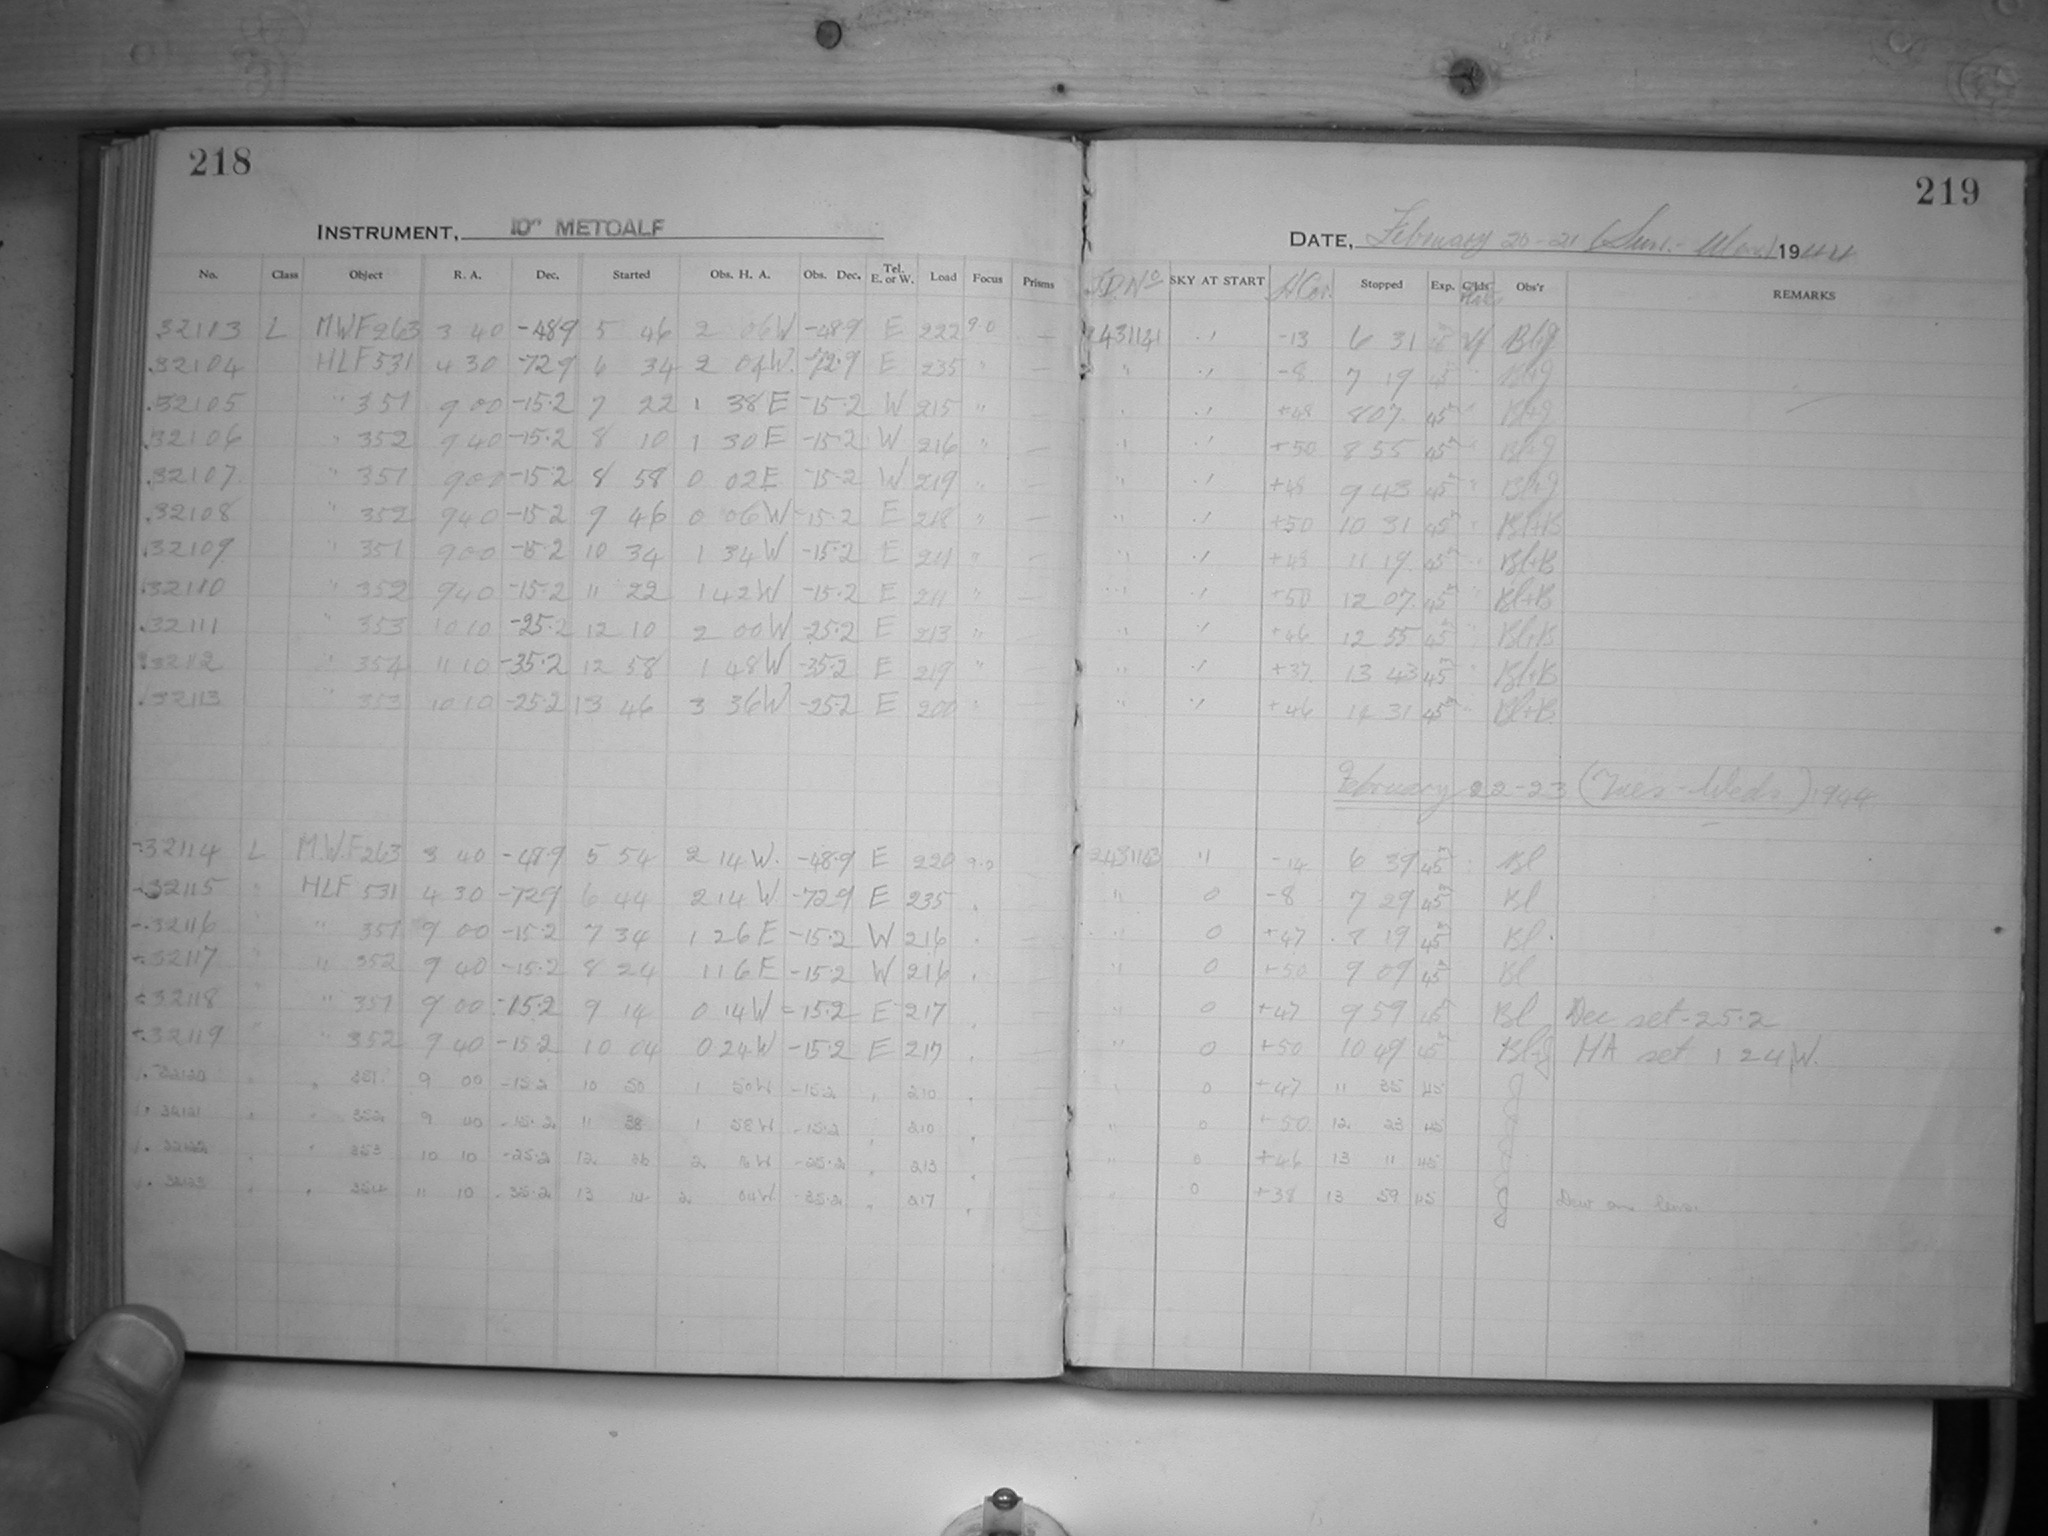 218
219
INSTRUMENT, 10" METCALF
DATE, February 20-21 (Sun.- Mon.) 1944
No. Class Object R. A. Dec. Started Obs. H. A. Obs. Dec. Tel. E. or W. Load Focus Prisms J.D. No SKY AT START Stopped Exp. Obs'r REMARKS
32113 L M.W.F 263 3 40 -48.9 5 46 2 06 W -48.9 E 222 9.0 — 2431141 -13 6 31
32104 HLF 531 4 30 -72.9 6 34 2 04 W. -72.9 E 235 " — " -8 7 19 45
.32105 " 351 9 00 -15.2 7 22 1 38 E -15.2 W 215 " — " +48 8 07 45
.32106 " 352 9 40 -15.2 8 10 1 30 E -15.2 W 216 " — " +50 8 55 45
.32107 " 351 9 00 -15.2 8 58 0 02 E -15.2 W 219 " — " +48 9 43 45
.32108 " 352 9 40 -15.2 9 46 0 06 W -15.2 E 218 " — " +50 10 31 45 Bl+B
.32109 " 351 9 00 -15.2 10 34 1 34 W -15.2 E 211 " — " +48 11 19 45 Bl+B
.32110 " 352 9 40 -15.2 11 22 1 42 W -15.2 E 211 " — " +50 12 07 45 Bl+B
.32111 " 353 10 10 -25.2 12 10 2 00 W -25.2 E 213 " " +46 12 55 45 Bl+B
32112 " 354 11 10 -35.2 12 58 1 48 W -35.2 E 219 " — " +37 13 43 45 Bl+B
32113 " 353 10 10 -25.2 13 46 3 36 W -25.2 E 200 " — " +46 14 31 45 Bl+B
February 22-23 (Tues - Weds.) 1944
32114 L M.W.F 263 3 40 -48.9 5 54 2 14 W. -48.9 E 220 9.0 2431143 " -14 6 39 45 Bl
32115 " HLF 531 4 30 -72.9 6 44 2 14 W -72.9 E 235 " 0 -8 7 29 45 Bl
32116 " " 351 9 00 -15.2 7 34 1 26 E -15.2 W 216 " 0 +47 8 19 45 Bl
32117 " " 352 9 40 -15.2 8 24 1 16 E -15.2 W 216 " 0 +50 9 09 45 Bl
32118 " " 351 9 00 -15.2 9 14 0 14 W -15.2 E 217 " 0 +47 9 59 45 Bl Dec set -25.2
32119 " " 352 9 40 -15.2 10 04 0 24 W -15.2 E 217 " 0 +50 10 49 45 HA set 1 24 W.
32120 " " 351 9 00 -15.2 10 50 1 50 W -15.2 " 210 " 0 +47 11 35 45
32121 " " 352 9 40 -15.2 11 38 1 58 W -15.2 " 210 " 0 +50 12 23 45
32122 " " 353 10 10 -25.2 12 26 2 16 W -25.2 " 213 " 0 +46 13 11 45
32123 " " 354 11 10 -35.2 13 14 2 04 W -35.2 " 217 " 0 +38 13 59 45 Dew on lens.